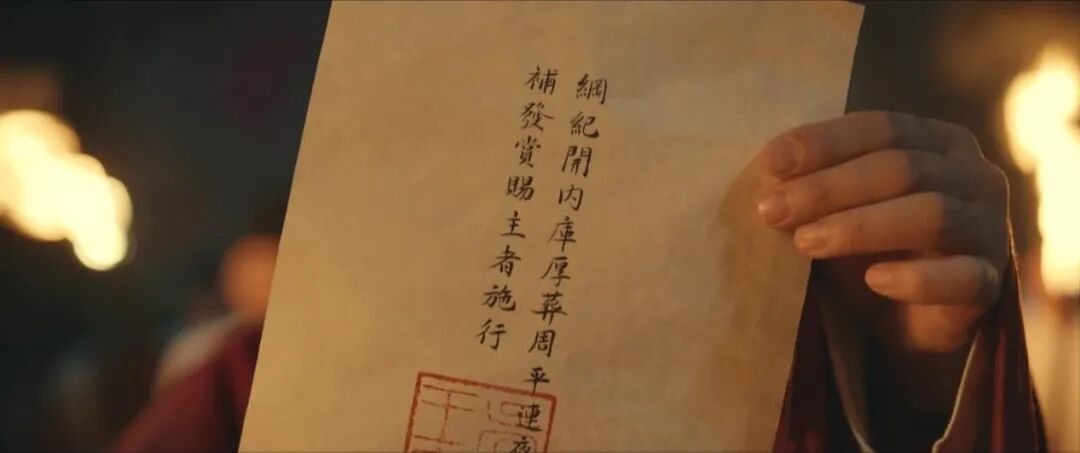 綱紀開内庫厚葬周平連夜
補發賞賜主者施行